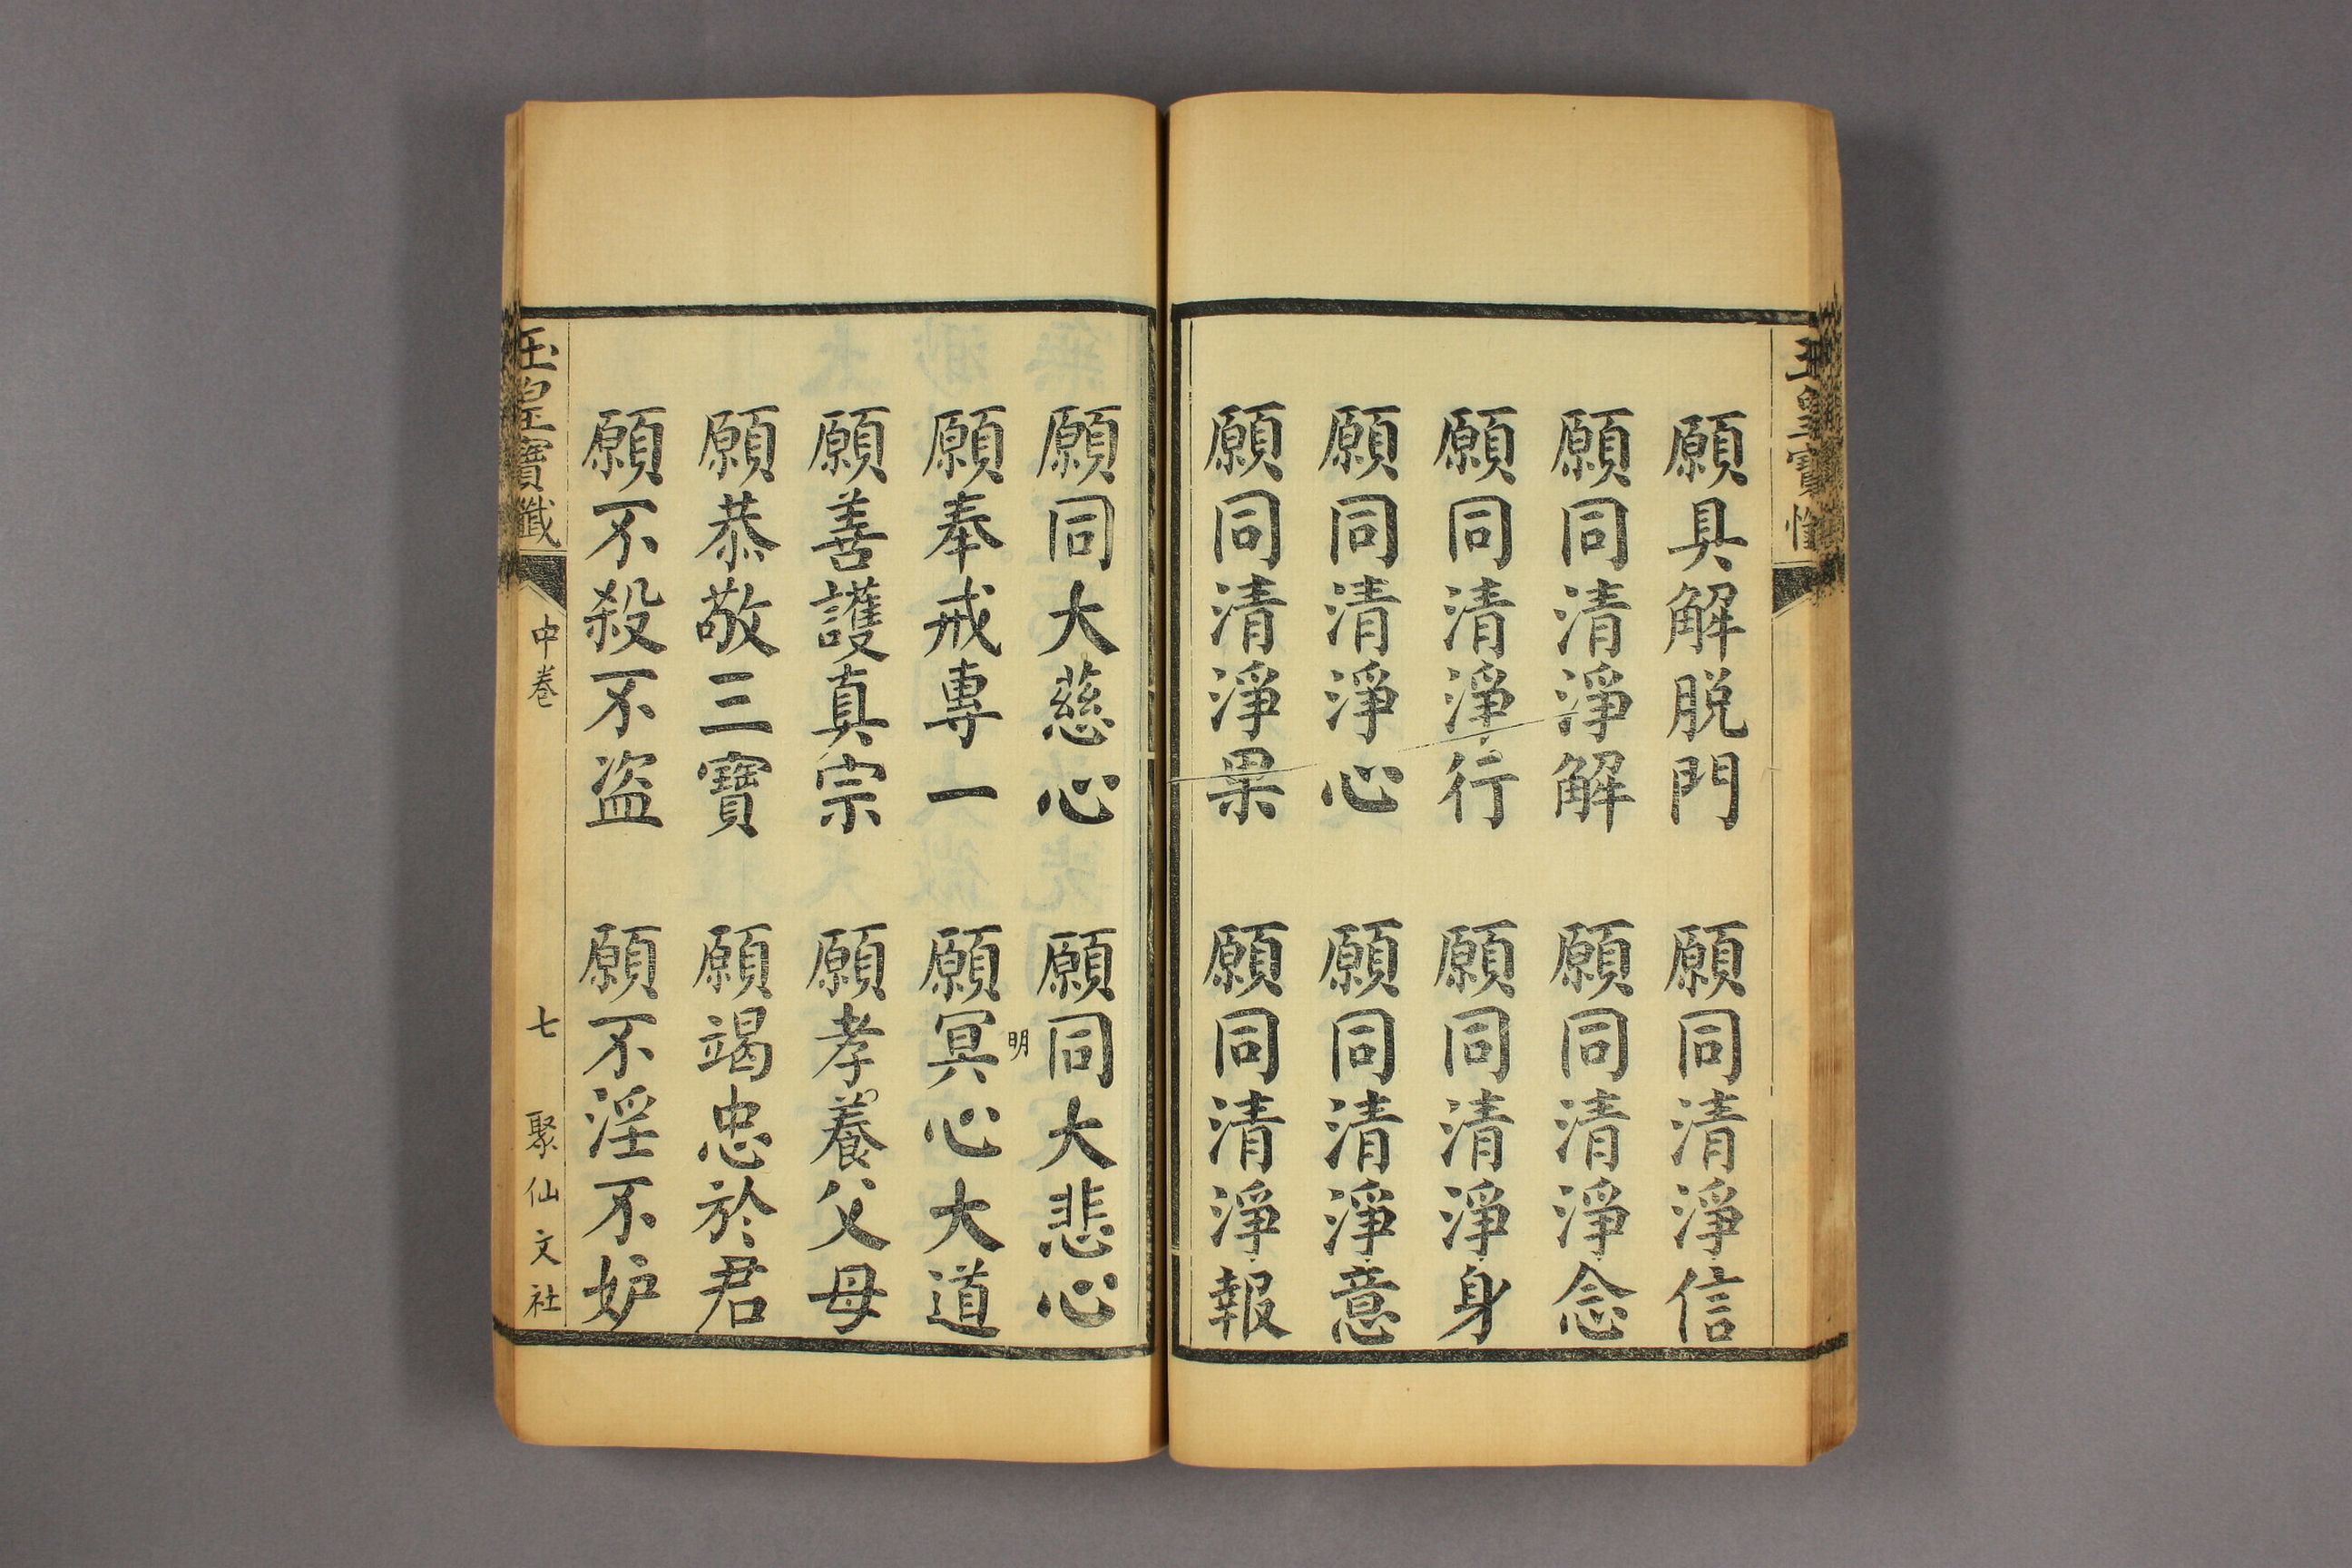 玉皇寶懺
願具解脱門　願同清淨信
願同清淨解　願同清淨念
願同清淨行　願同清淨身
願同清淨心　願同清淨意
願同清淨果　願同清淨報
願同大慈心　願同大悲心
明
願奉戒專一　願冥心大道
願善護真宗　願孝養父母
願恭敬三寶　願竭忠於君
願不殺不盗　願不淫不妒
玉皇寶懺　中卷　七　聚仙文社